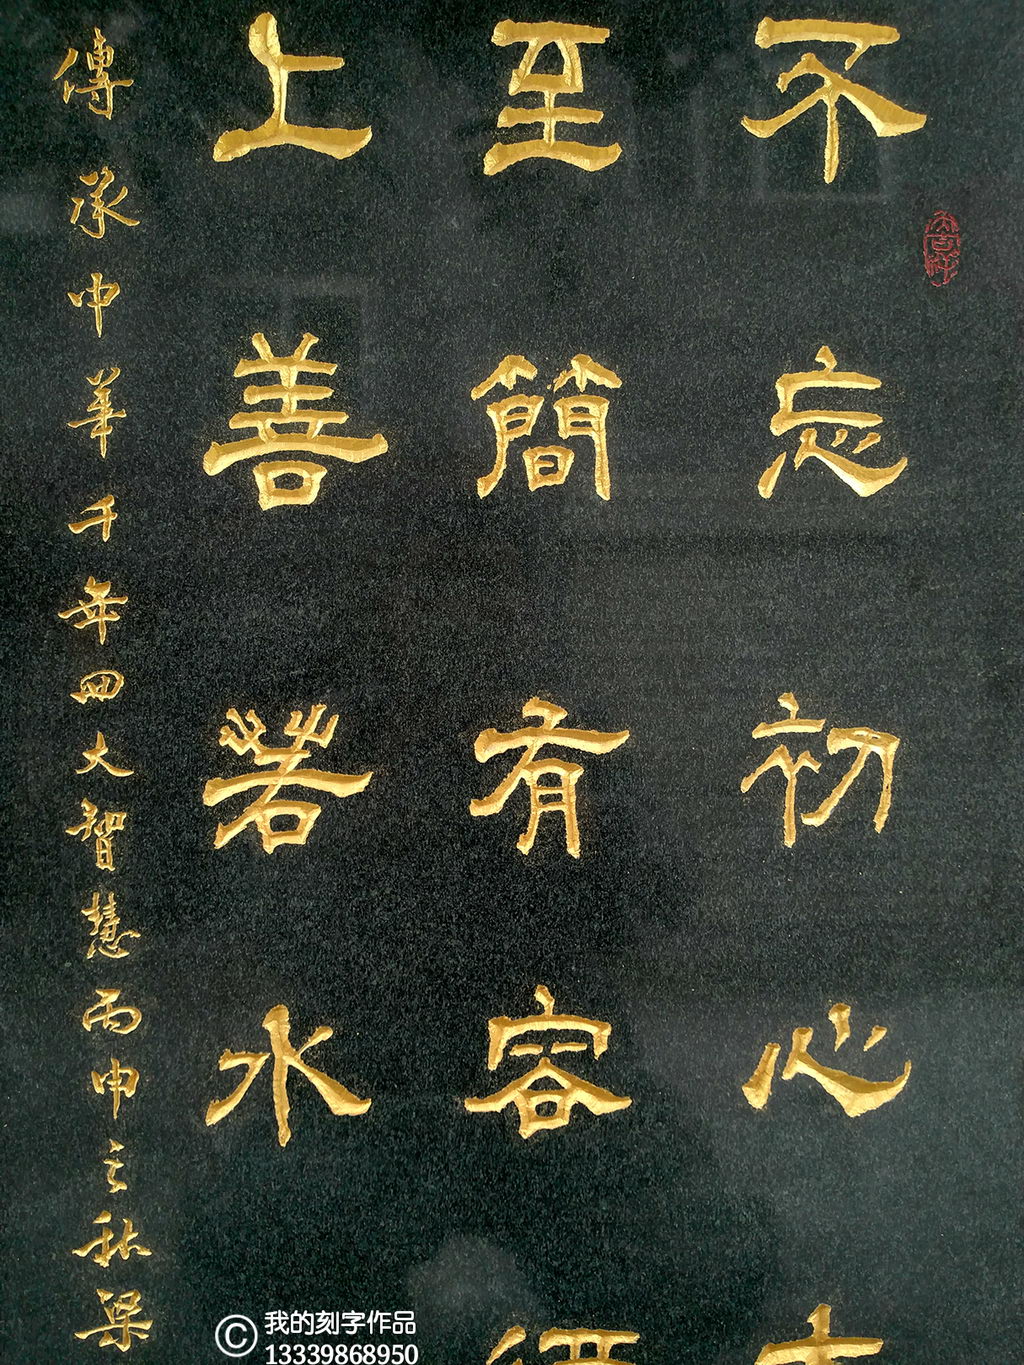 不忘初心
至簡有容
上善若水
傳承中華千年四大智慧丙申之秋梁
大吉祥
©我的刻字作品
13339868950